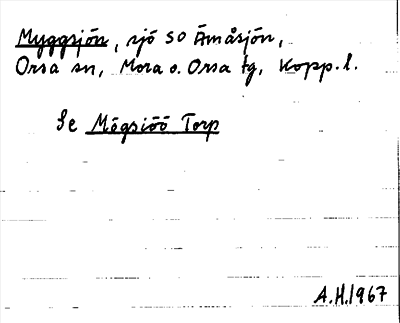 Myggsjön, sjö SO Ämåsjön,
Orsa sn, Mora o. Orsa tg, Kopp. l.
Se Mögsiöö Torp
A.H. 1967